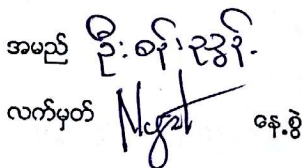 အမည် ဦးစန်းညွန့်
လက်မှတ် နေ့စွဲ